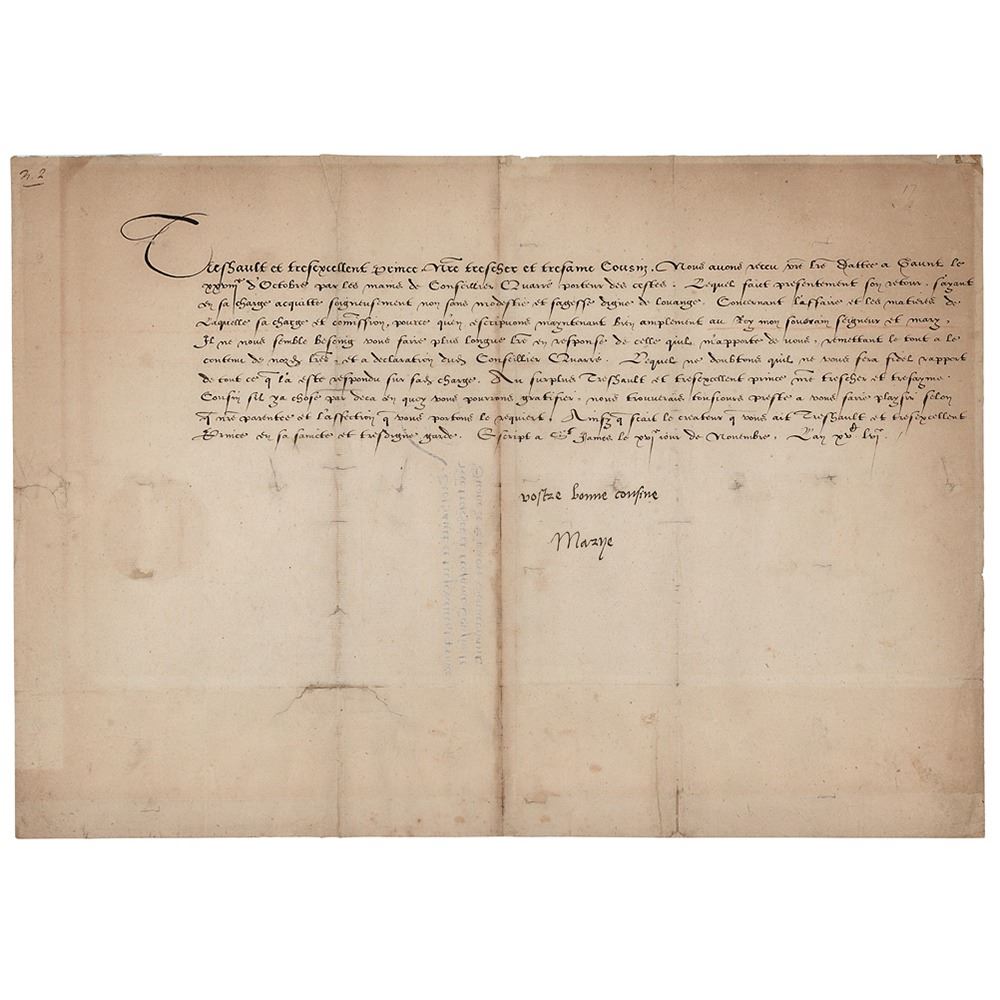 N. 2
17
Treshault et tresexcellent prince. Nre trescher et tresame Cousin. Nous avons receu vre lre dattee a Gaunt le
xxviije d'Octobre par les mains de Conseillier Quarre porteur des cestes. Lequel faict presentement son retour, s'ayant
en sa charge acquitte soigneusement non sans modestie et sagesse digne de louange. Concernant l'affaire et les matieres de
laquelle sa charge et comission, pource qu'en escripvons maintenant bien amplement au Roy mon souverain seigneur et mary,
Il ne nous semble besoing vous faire plus longue lre en response de celle qu'il m'apporte de vous, remettant le tout a le
contenu de nozd lres, et a declaration dud Conseillier Quarre. Lequel ne doubtons qu'il ne vous fera fidel rapport
de tout ce q la este respondu sur sad charge. Au surplus Treshault et tresexcellent prince nre trescher et tresayme
Cousin sil ya chose par deca en quoy vous pourrons gratifier, nous trouverais tousiours preste a vous faire plaisir selon
q nre parentee et l'affection q vous portons le requiert. Ainsy q scait le createur q vous ait Treshault et tresexcellent
Prince en sa saincte et tresdigne garde. Escript a St James le xvje iour de Novembre, L'an xvc lvj.
vostre bonne cousine
Marye